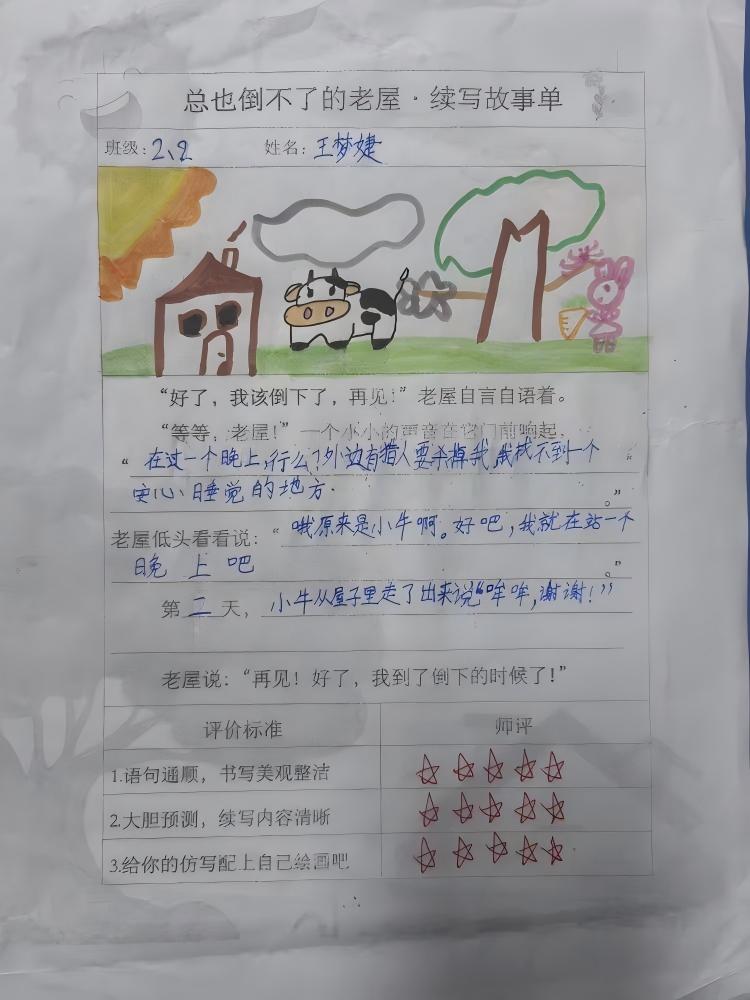 总也倒不了的老屋·续写故事单
班级：2、2 姓名：王梦婕
“好了，我该倒下了，再见！”老屋自言自语着。
“等等，老屋！”一个小小的声音在它门前响起，
“在过一个晚上，行么？外边有猎人要杀掉我，我找不到一个
安心睡觉的地方.。”
老屋低头看看说：“哦原来是小牛啊。好吧，我就在站一个
晚上吧。”
第二天，小牛从屋子里走了出来说“哞哞，谢谢！”
老屋说：“再见！好了，我到了倒下的时候了！”
评价标准 师评
1.语句通顺，书写美观整洁
2.大胆预测，续写内容清晰
3.给你的仿写配上自己绘画吧